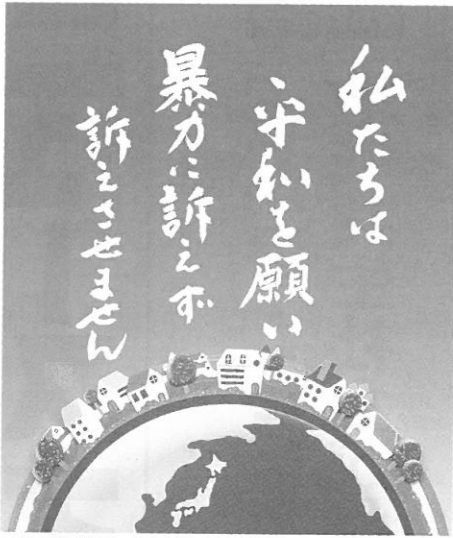 私たちは
平和を願い
暴力に訴えず
訴えさせません